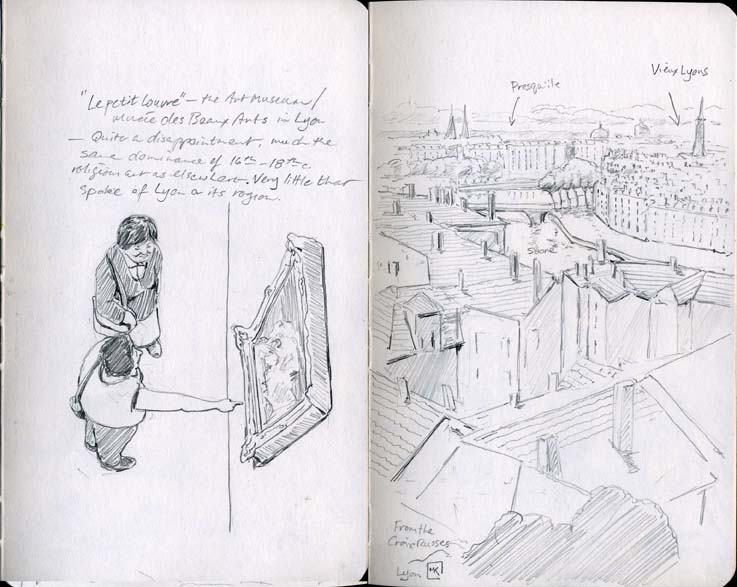 "Le petit Louvre" – the Art Museum/
Musée des Beaux Arts in Lyon
– Quite a disappointment, much the
same dominance of 16th – 18th c.
religious art as elsewhere. Very little that
spoke of Lyon or its region.
Presqu'ile
Vieux Lyons
Saone
From the
Croix Rousses
Lyon HK